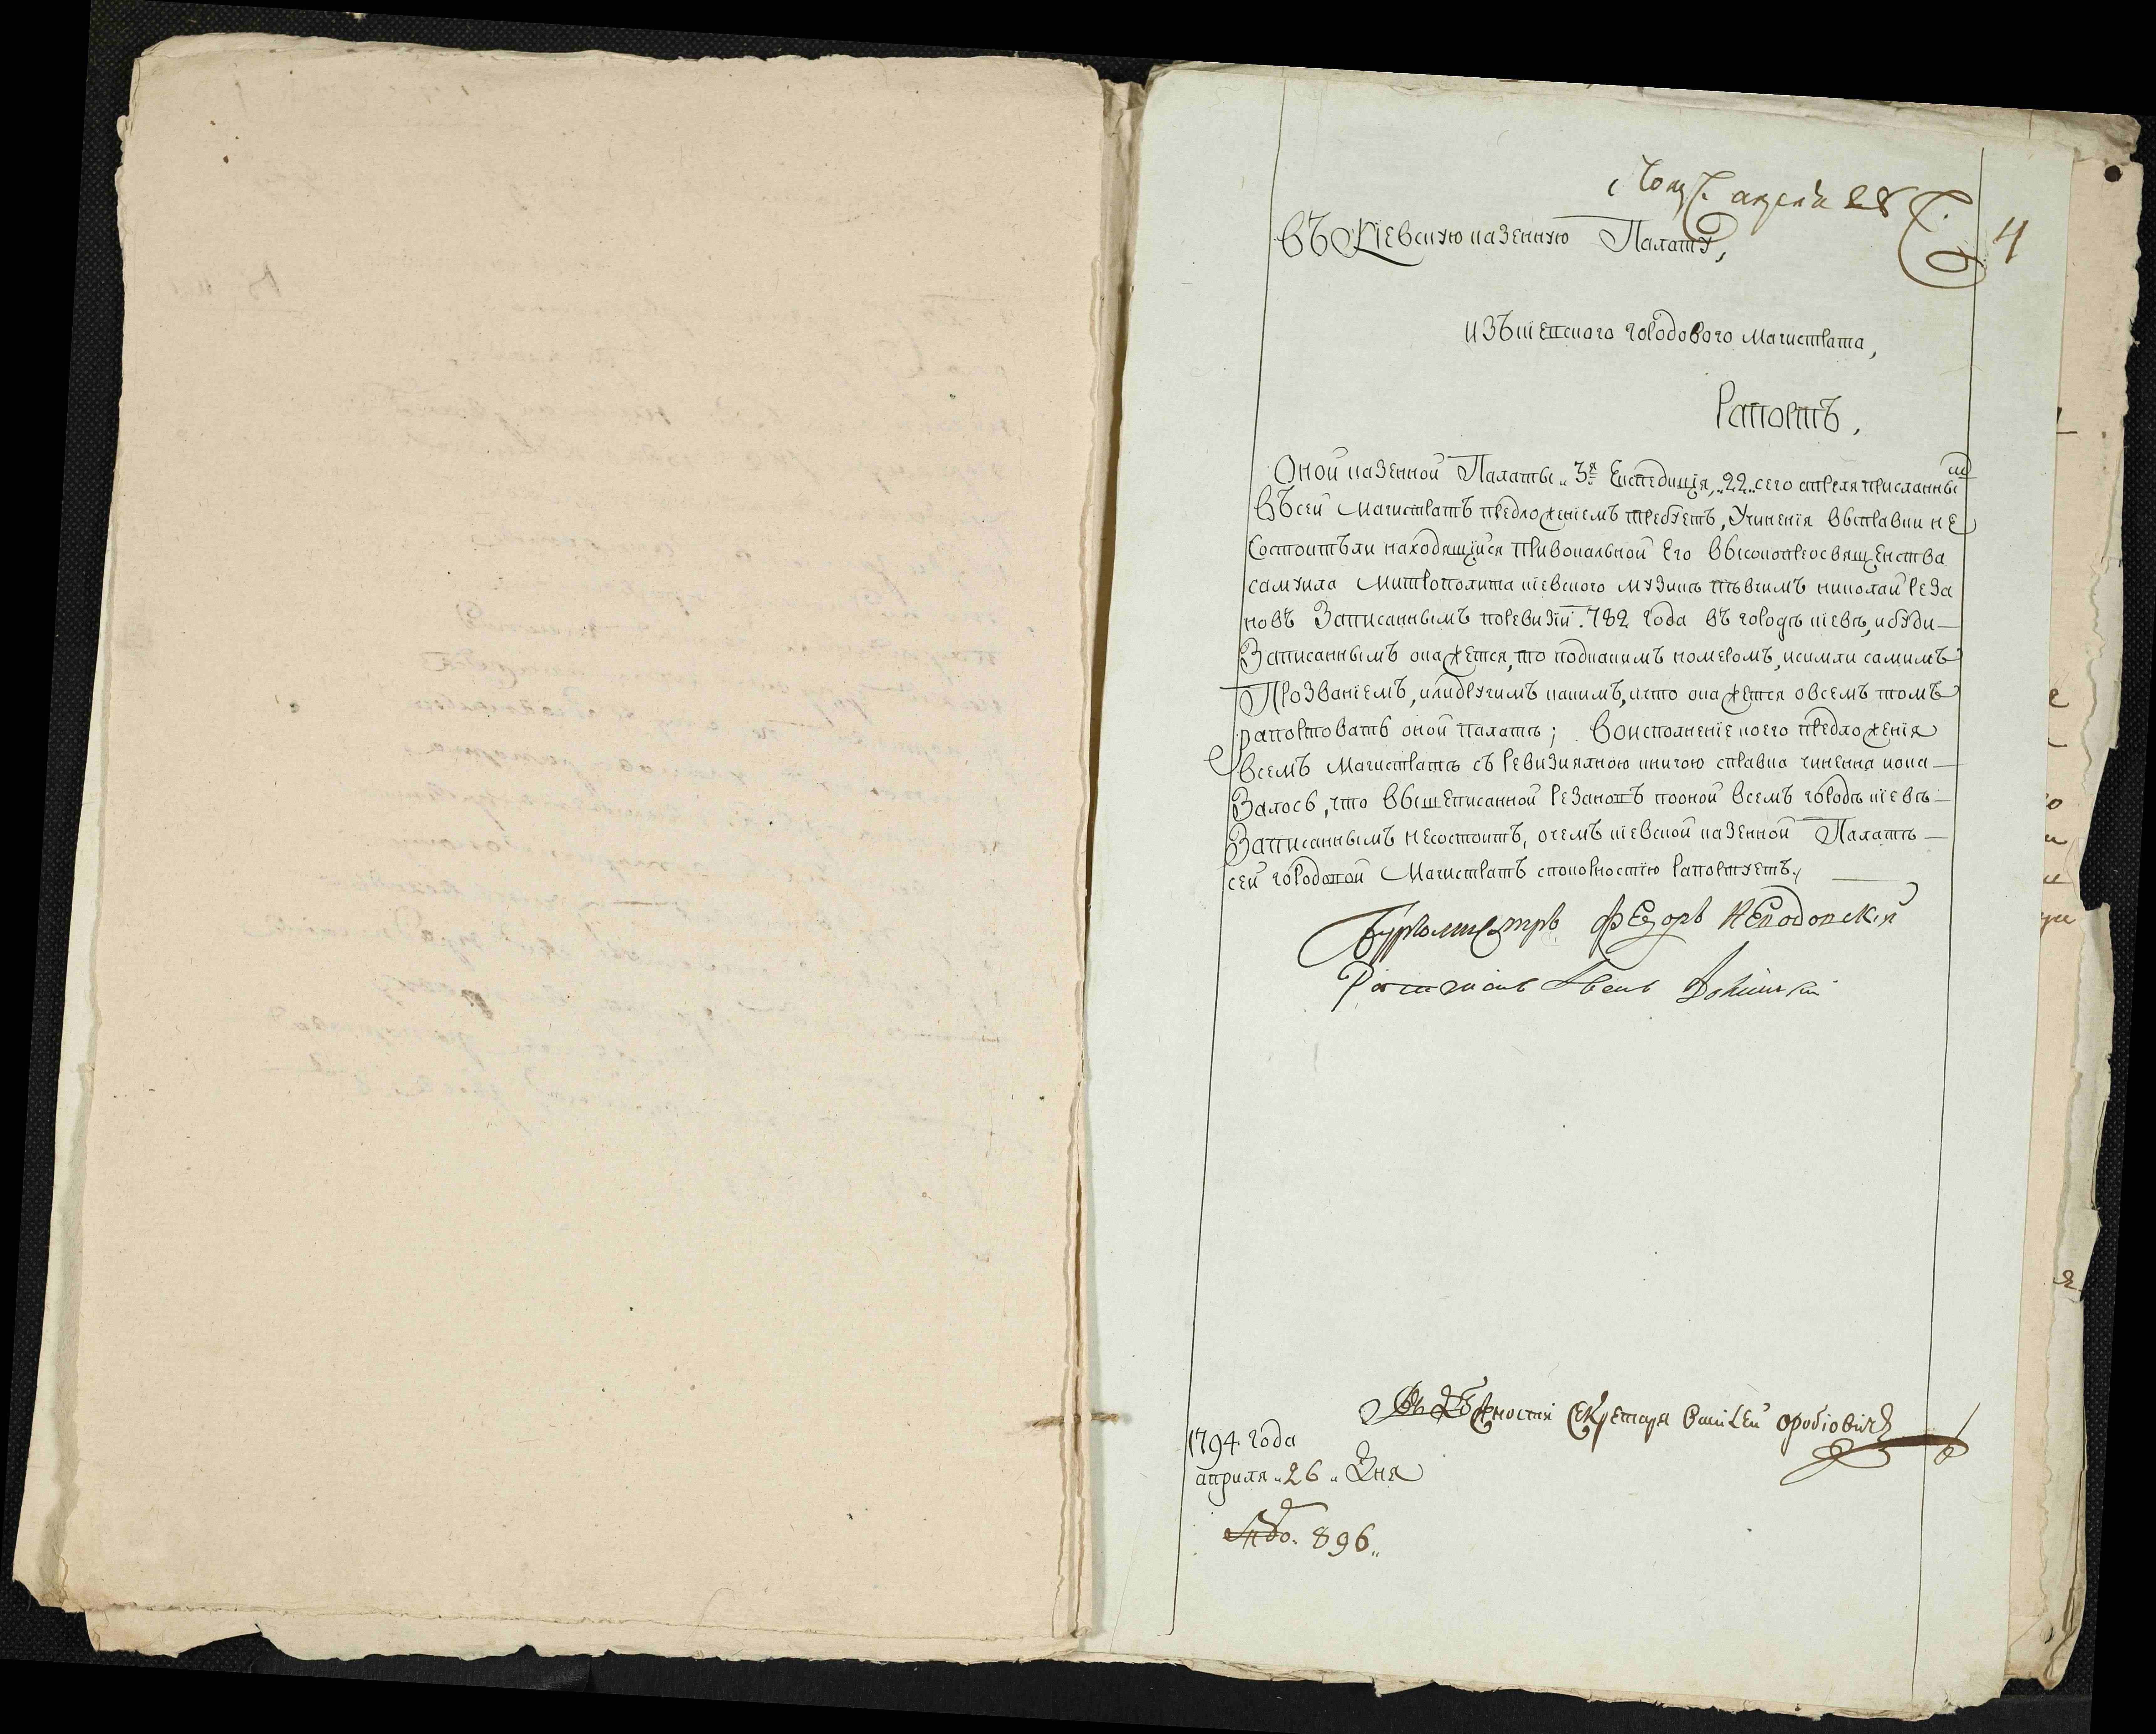 Полу: апреля 28
4
Въ Кіевскую казенную Палату,
изъ кіевского городового магистрата,
Рапортъ,
Оной казенной Палаты „3я экспедиція, „22„ сего апреля присланнымъ
въ сей магистратъ предложеніемъ требуетъ, учиненія выправки не
состоитъ ли находящійся при вокальной его высокопреосвященства
самуила митрополита кіевского музикѣ пѣвчимъ николай реза
новъ записаннымъ по ревизіи 782 года въ городѣ кіевѣ, и буди
записаннымъ окажется, то под какимъ номеромъ, и симли самимъ
прозваніемъ, или другимъ какимъ, и что окажется о всемъ томъ
рапортовать оной палатѣ; во исполненіе коего предложенія
в семъ магистратѣ съ ревизиялною книгою справка чиненна и ока
залось, что вышеписанной резановъ по оной в семъ городѣ кіевѣ
записаннымъ не состоитъ, о чемъ кіевской казенной Палатѣ
сей городовой магистратъ с покорностію рапортуетъ,
Бургомистръ федоръ
Ратманъ Иванъ
Въ должности секретаря
1794 года
апреля „26„ дня
896„